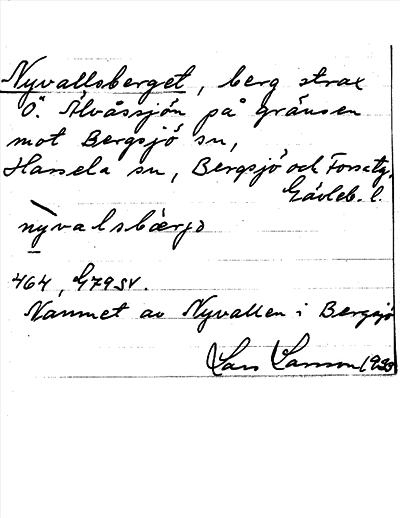 Nyvallsberget, berg strax
Ö. Älvåssjön på gränsen
mot Bergsjö sn,
Hassela sn, Bergsjö och Forsa tg,
Gävleb. l.
nyvalsbærjə
464, G79SV.
Namnet av Nyvallen i Bergsjö
Lars Larsson